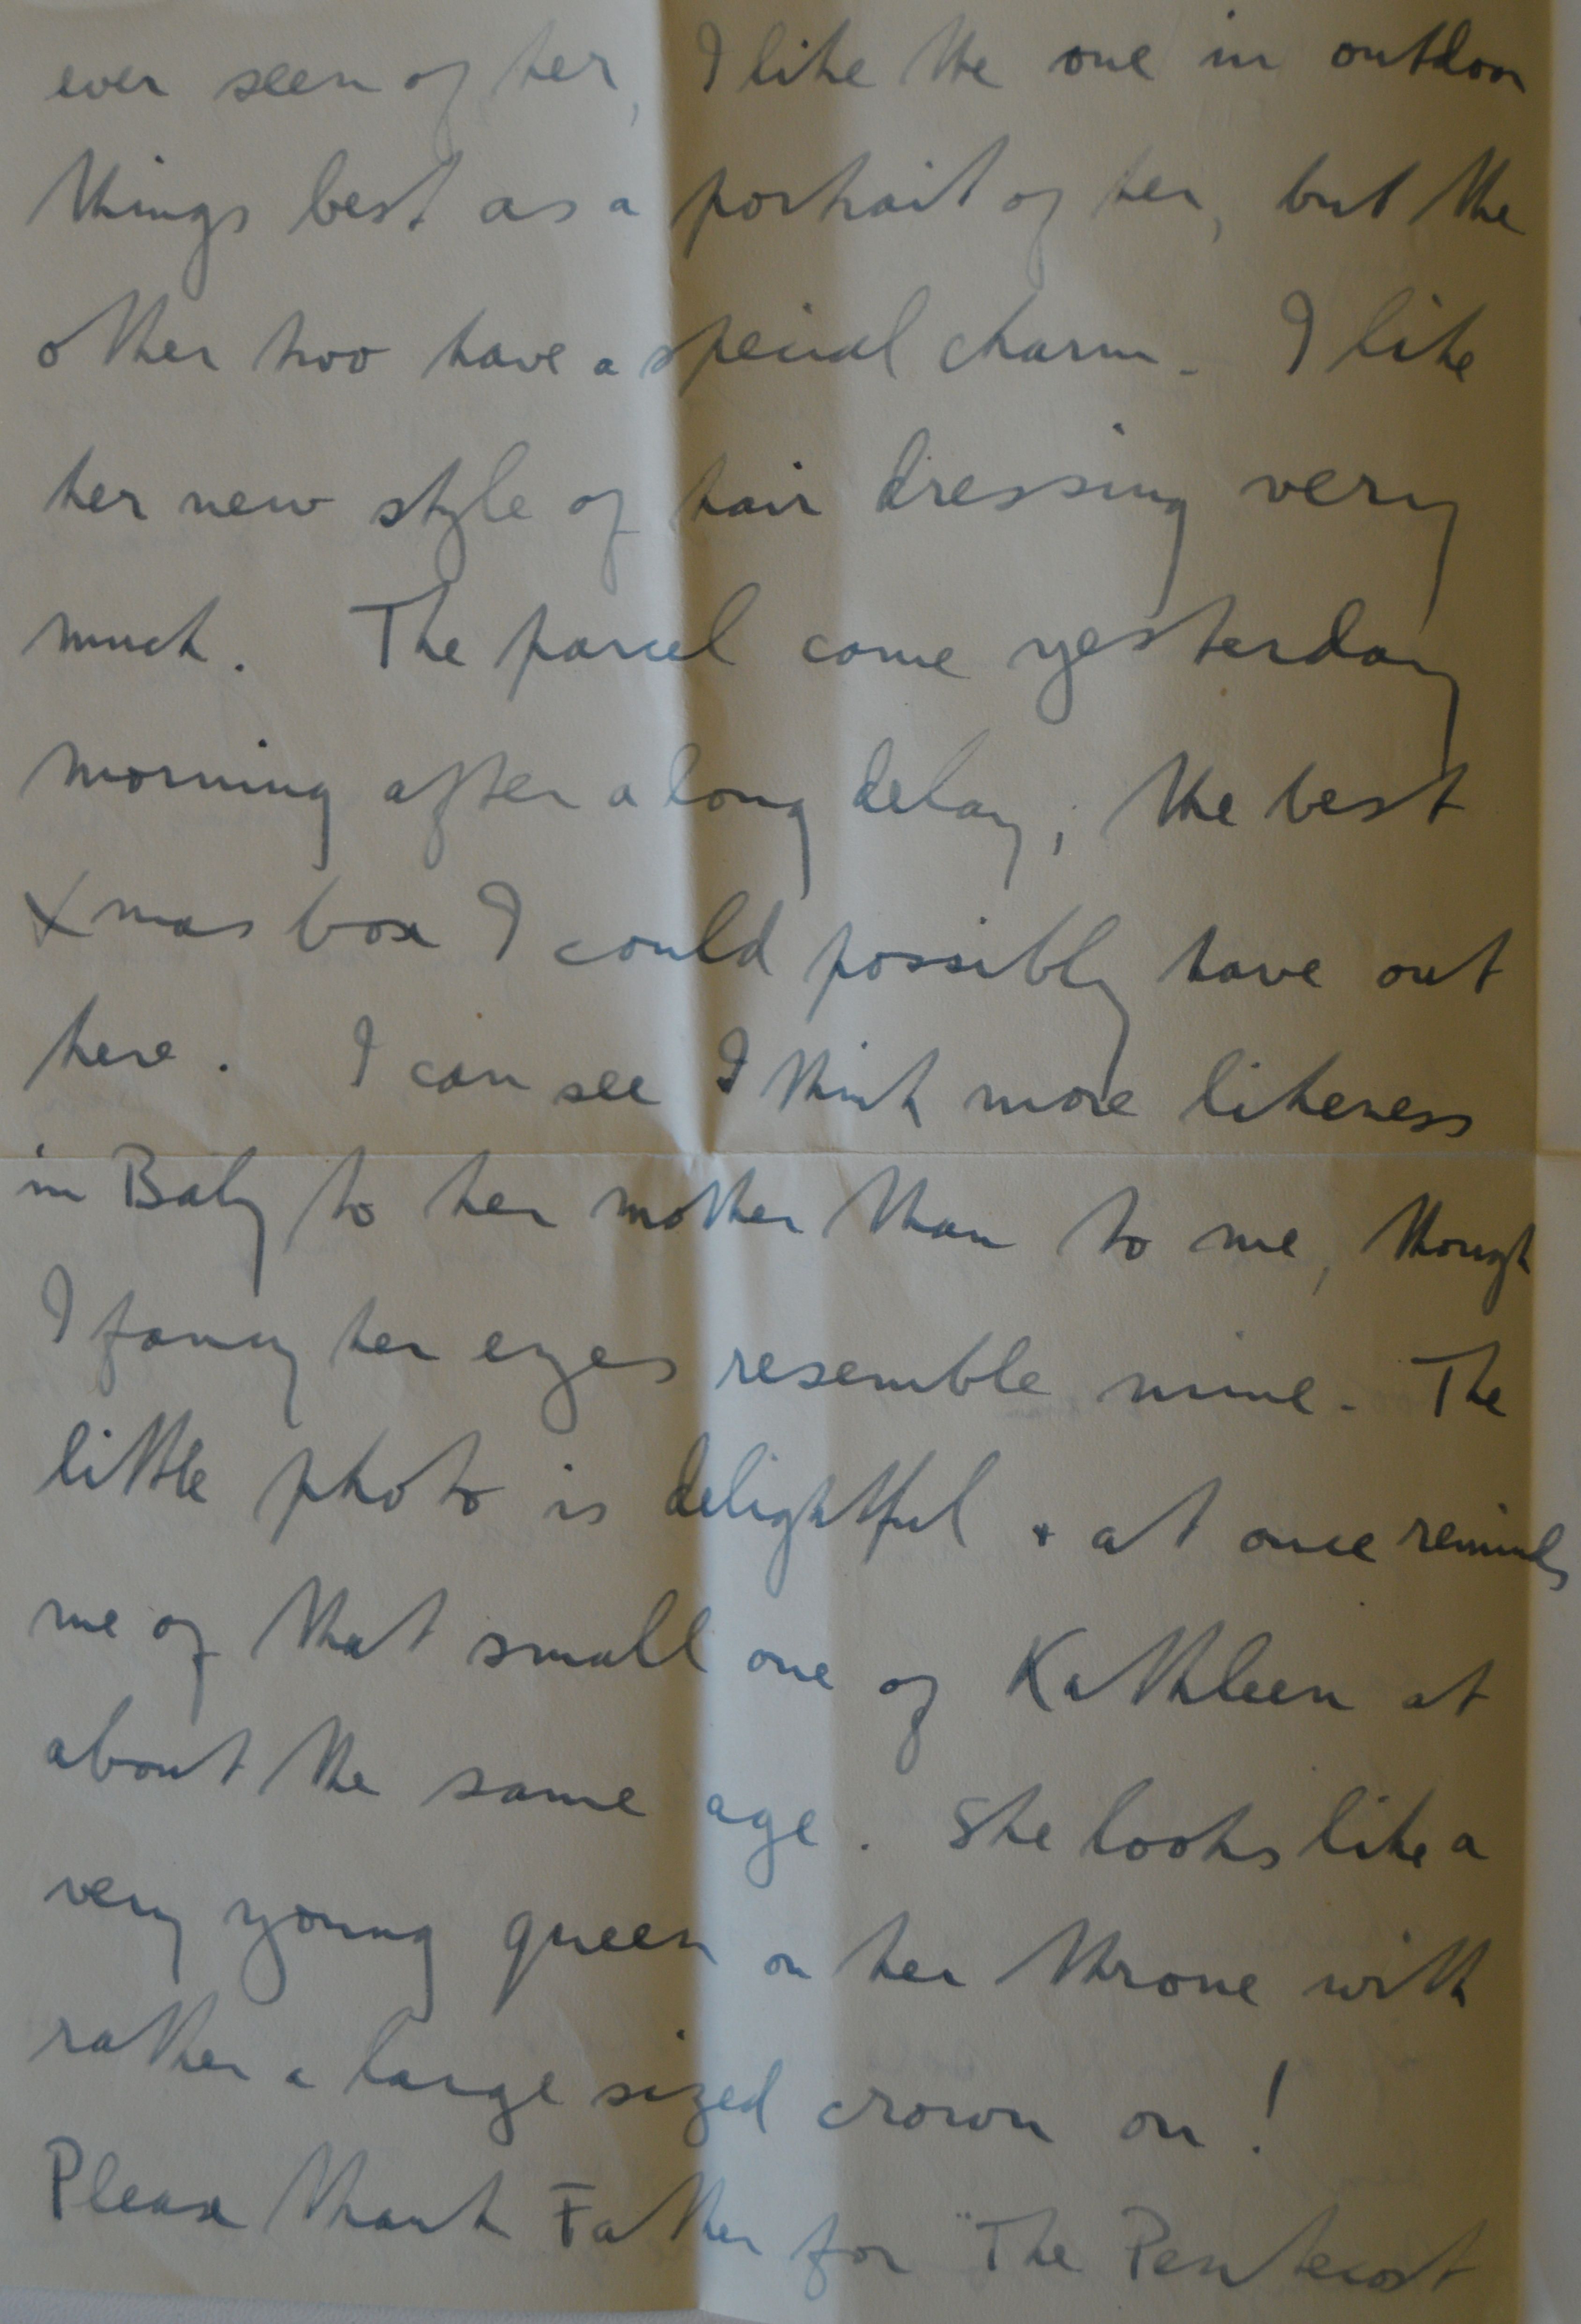 ever seen of her, I like the one in outdoor
things best as a portrait of her, but the
other two have a special charm. I like
her new style of hair dressing very
much. The parcel came yesterday
morning after a long delay; the best
Xmas box I could possibly have out
here. I can see I think more likeness
in Baby to her mother than to me, though
I fancy her eyes resemble mine. The
little photo is delightful & at once reminds
me of that small one of Kathleen at
about the same age. She looks like a
very young queen on her throne with
rather a large sized crown on!
Please thank Father for "The Pentecost